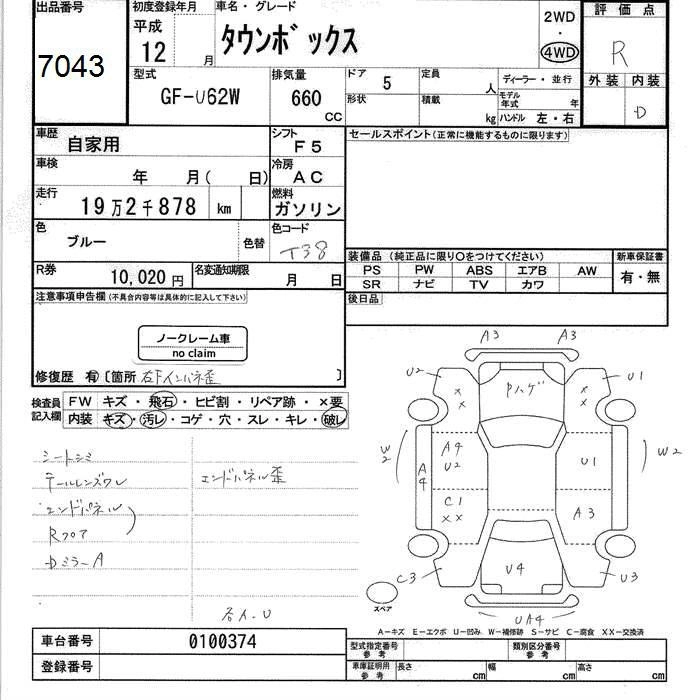 出品番号
7043
初度登録年月
平成
12 月
車名・グレード
タウンボックス
2WD
・
4WD
評価点
R
外装 内装
D
型式
GF-U62W
排気量
660
CC
ドア 5
形状
定員 人
積載 kg
ディーラー・並行
モデル年式 年
ハンドル 左・右
車歴
自家用
シフト
F5
車検
年 月( 日)
冷房
AC
走行
19万2千878 km
燃料
ガソリン
色
ブルー
色替
色コード
T38
R券
10,020円
名変通知期限
月 日
セールスポイント(正常に機能するものに限ります)
装備品(純正品に限り○をつけてください)
PS PW ABS エアB AW
SR ナビ TV カワ
新車保証書
有・無
後日品
注意事項申告欄(不具合内容等は具体的に記入して下さい)
ノークレーム車
no claim
修復歴 有〔箇所 右Fインパネ歪 〕
検査員
記入欄
FW キズ・飛石・ヒビ割・リペア跡・×要
内装 キズ・汚レ・コゲ・穴・スレ・キレ・破レ
シートシミ
テールレンズワレ
エンドパネル
Rフロア
DミラーA
エンドパネル歪
各A.U
A3 A3
U2 Pハゲ U1
×× ××
W2 A4 A4 U2 U1 W2
C1 ×× A3
C3 U4 U3
スペア
UA4
A-キズ E-エクボ U-凹み W-補修跡 S-サビ C-腐食 XX-交換済
車台番号 0100374
登録番号
型式指定番号
参考
類別区分番号
参考
車庫証明用
参考
長さ cm
幅 cm
高さ cm